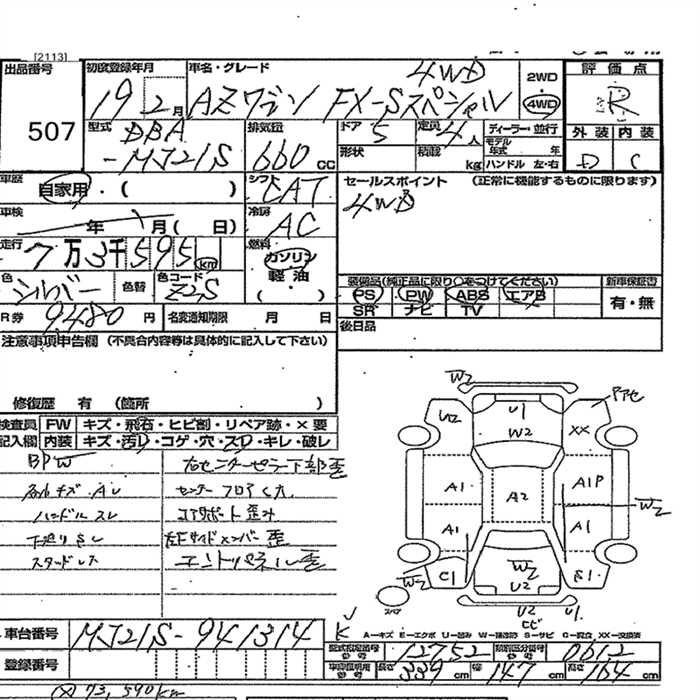 [2113]
出品番号 初度登録年月 車名・グレード 2WD 評価点
507
19 2月 AZワゴン FX-Sスペシャル 4WD 4WD R
型式 DBA 排気量 ドア 5 定員 4人 ディーラー・並行 外装 内装
-MJ21S 660cc 形状 積載 kg モデル年式 年 ハンドル 左・右 D C
車歴 自家用・( ) シフト CAT セールスポイント (正常に機能するものに限ります)
車検 年 月( 日) 冷房 AC 4WD
走行 7万3千595km 燃料 ガソリン
軽油
( )
色 シルバー 色替 色コード Z2S
装備品(純正品に限り○をつけてください) 新車保証書
PS PW ABS エアB 有・無
SR ナビ TV
R券 9480円 名変通知期限 月 日 後日品
注意事項申告欄 (不具合内容等は具体的に記入して下さい)
修復歴 有 (箇所 )
検査員 FW キズ・飛石・ヒビ割・リペア跡・×要
記入欄 内装 キズ・汚レ・コゲ・穴・スレ・キレ・破レ
右センターピラー下部歪
ハンドルスレ コアサポート歪み
下廻りサビ 左Fサイドメンバー歪
スタッドレス エンドパネル歪
W2
U2 U1 XX
W2
A1 A2 A1P
W2
A1 A1
W2 C1 W2 S1
U2
U2 U1
A=キズ E=エクボ U=凹み W=補修跡 S=サビ C=腐食 XX=交換済
車台番号 MJ21S-941314
型式指定番号 12752 類別区分番号 0612
登録番号 長さ 339cm 幅 147cm 高さ 164cm
73,590km